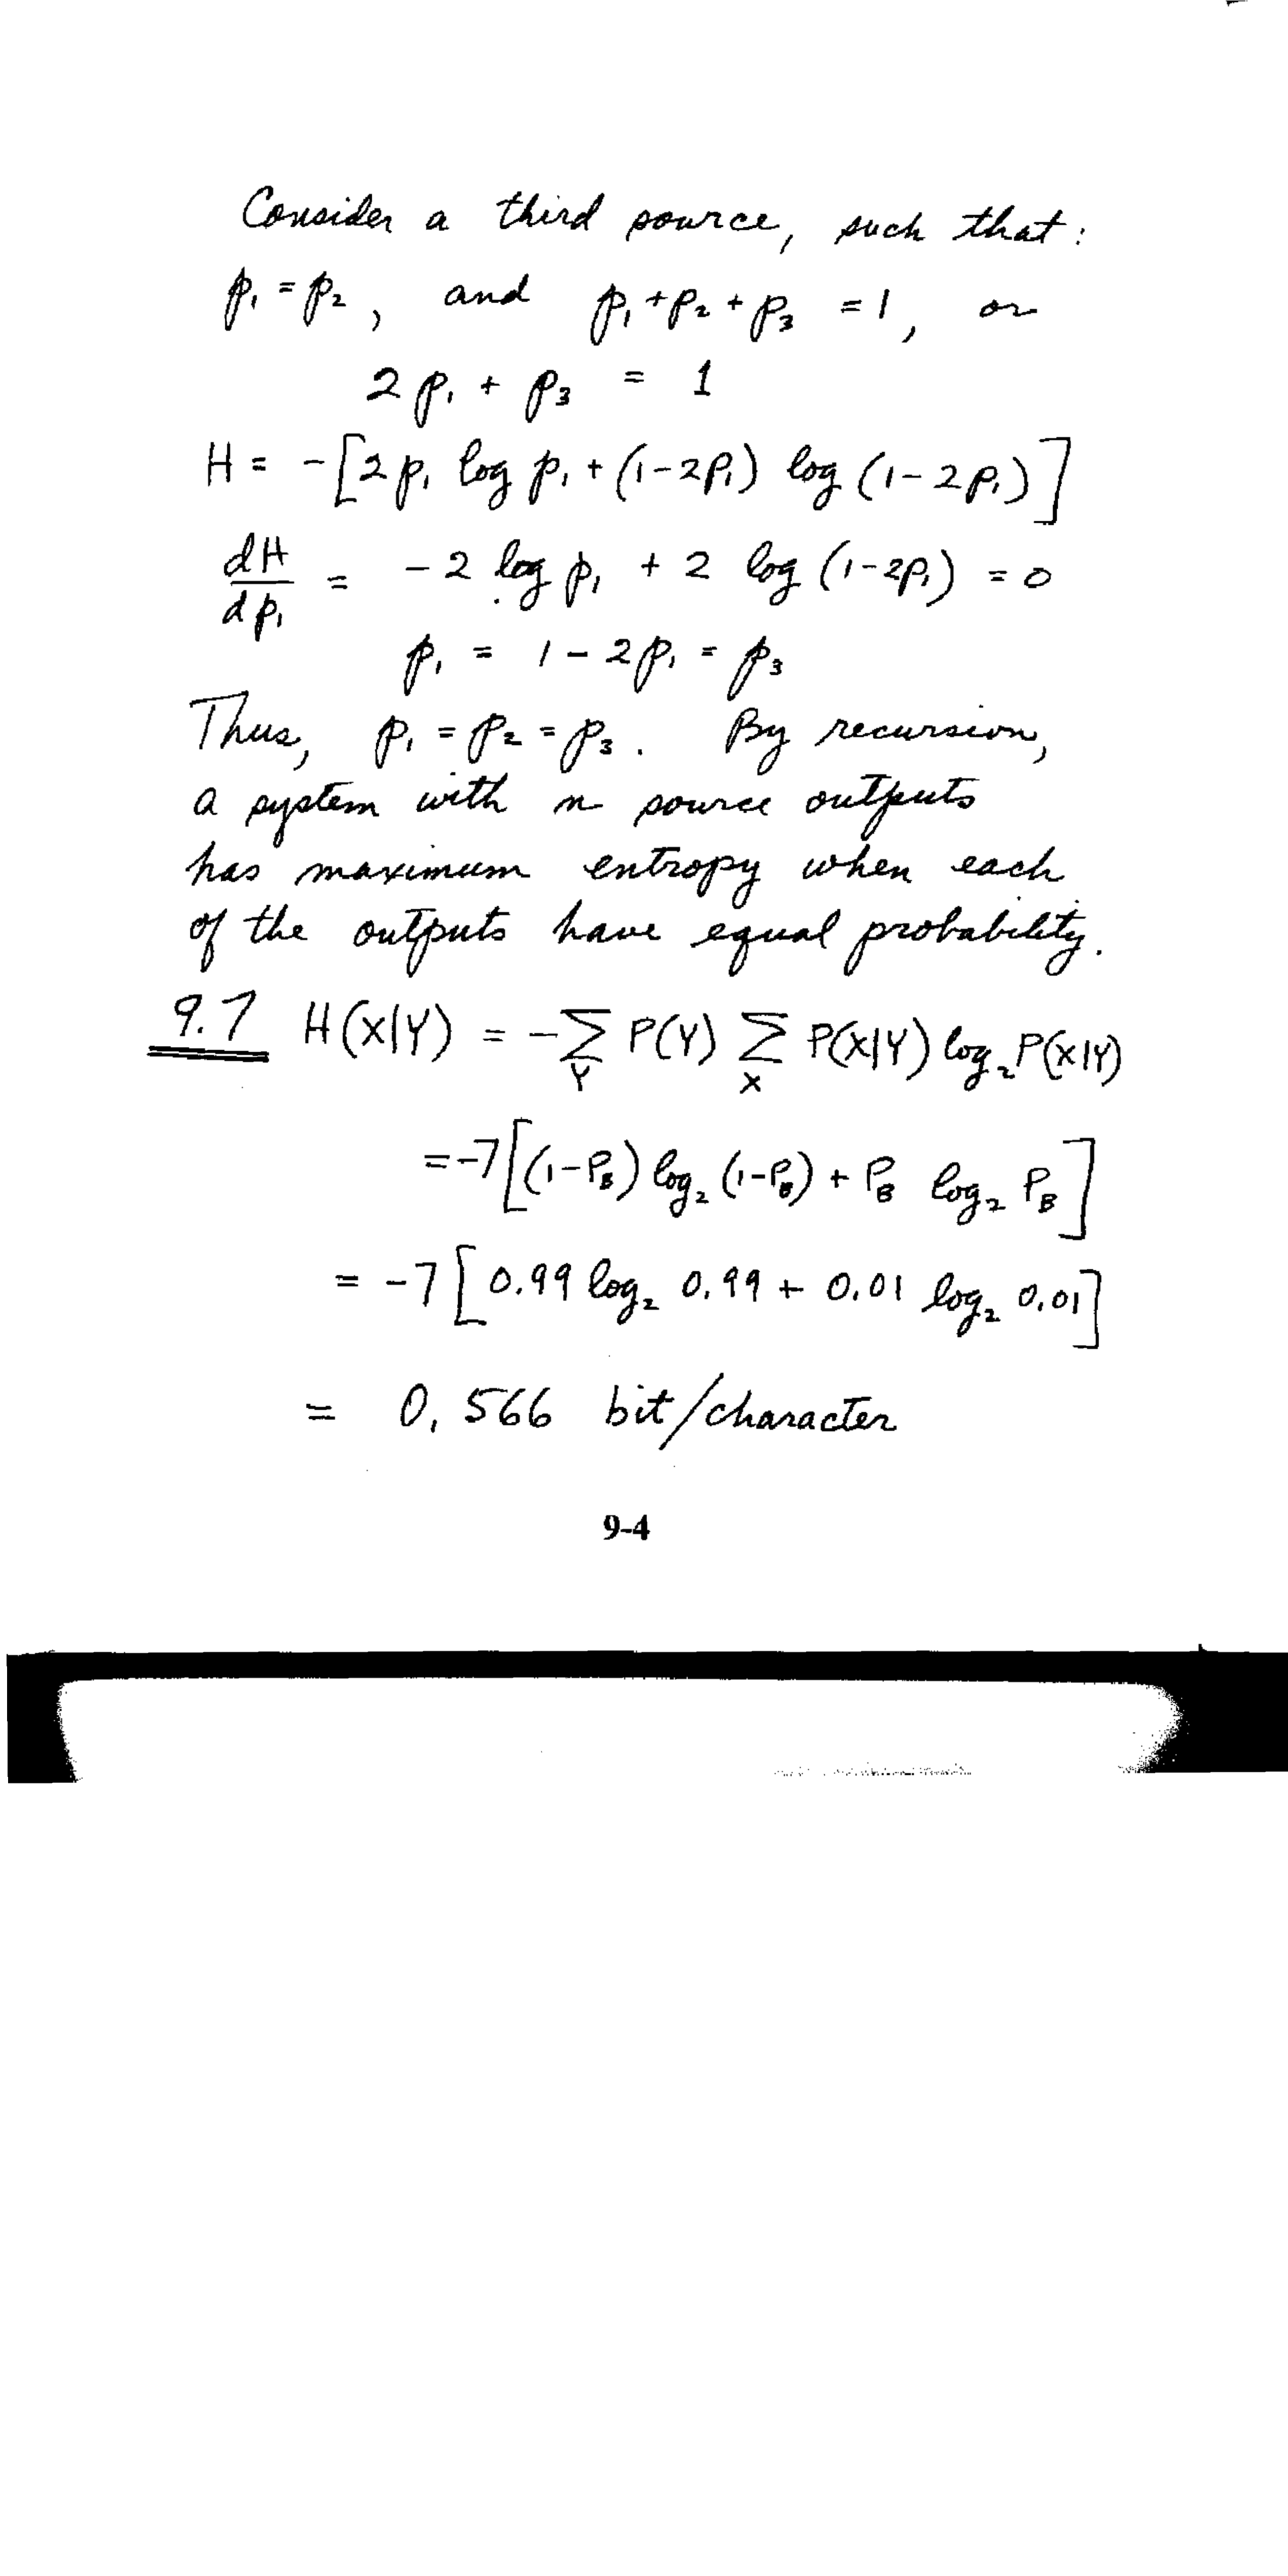 Consider a third source, such that:
p₁ = p₂, and p₁ + p₂ + p₃ = 1, or
2p₁ + p₃ = 1
H = -[2p₁ log p₁ + (1-2p₁) log (1-2p₁)]
dH/dp₁ = -2 log p₁ + 2 log (1-2p₁) = 0
p₁ = 1 - 2p₁ = p₃
Thus, p₁ = p₂ = p₃. By recursion,
a system with n source outputs
has maximum entropy when each
of the outputs have equal probability.
9.7 H(X|Y) = -∑_Y P(Y) ∑_X P(X|Y) log₂ P(X|Y)
= -7[(1-P_B) log₂ (1-P_B) + P_B log₂ P_B]
= -7[0.99 log₂ 0.99 + 0.01 log₂ 0.01]
= 0.566 bit/character
9-4